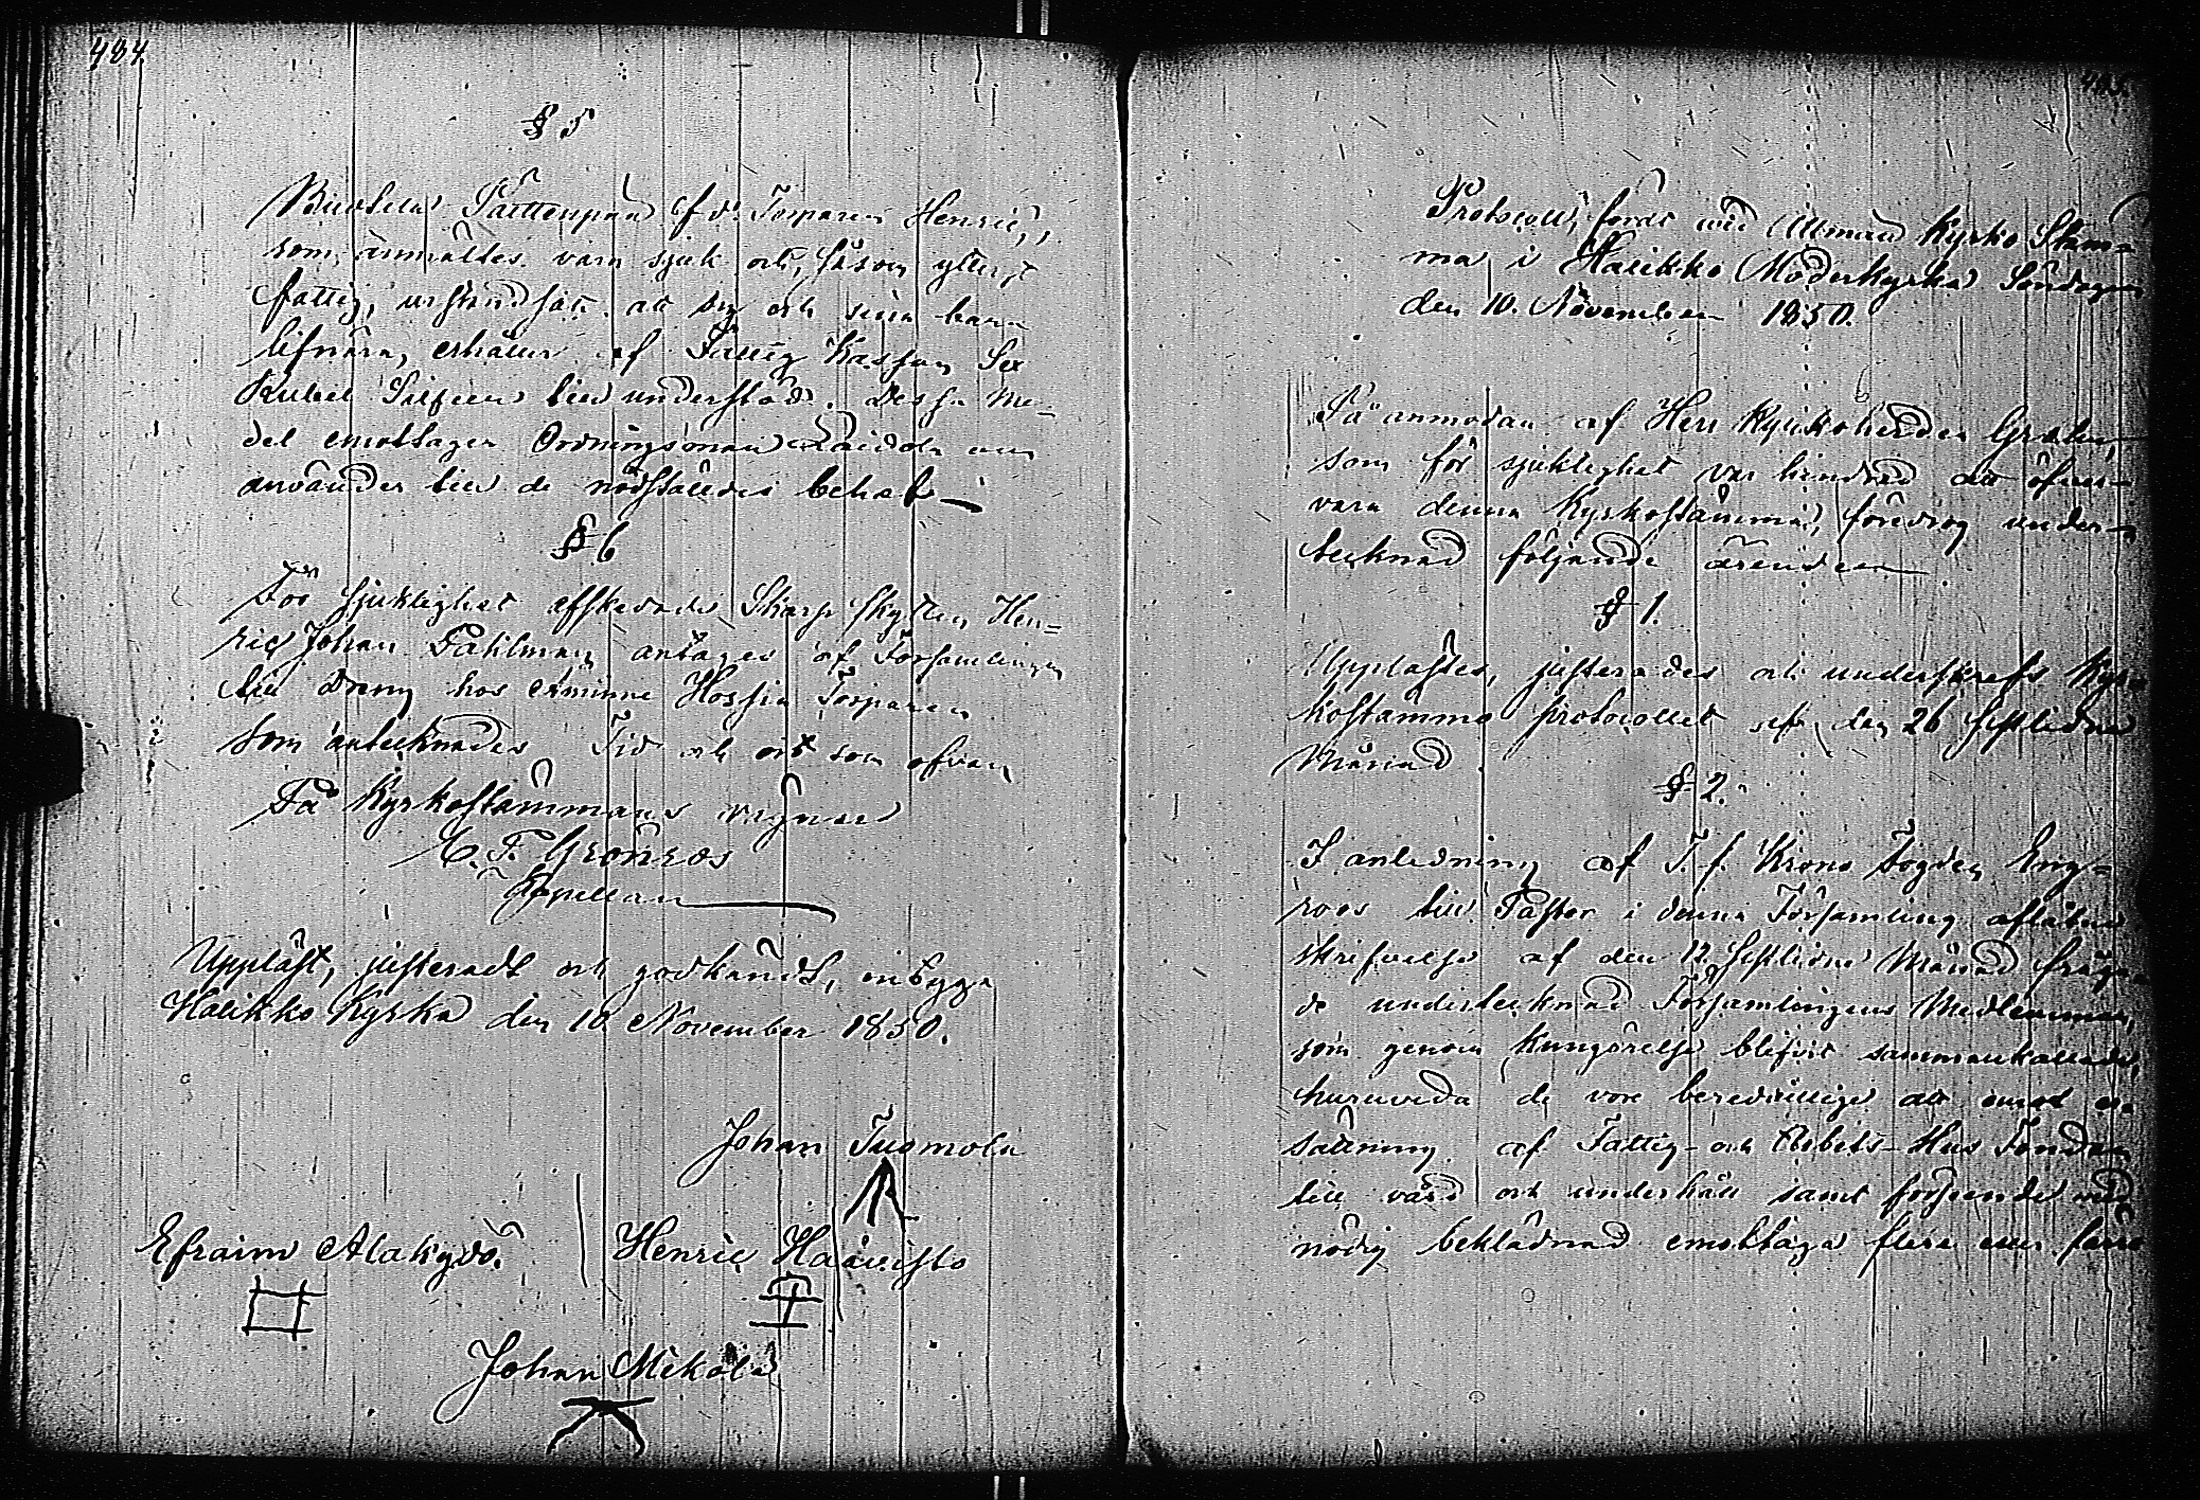 484.
§ 5
fd. Torparen Henric,
som anmältes vara sjuk och, såsom ytterst
fattig, urståndsatt att sig och sina barn
lifnära, erhåller af Fattig Kassan Sex
Rubel Silfver till understöd. Dessa me-
del emottager Ordningsman och
använder till de nödställdes behof
§ 6
För sjuklighet afskedade Skarp skytten Hen-
ric Johan Pahlman antages af Församlingen
till Dreng hos Åminne Torparen
som antecknades Tid och ort som ofvan
På Kyrkostämmans vägnar
Grönroos
Capellan
Uppläst, justeradt och godkändt, intygar
Halikko Kyrka den 10 November 1850.
Johan Tuomola
Efraim Alakylä.
Henric Haavisto
Johan Mikola
485
Protocoll, fördt vid Allmän Kyrko Stäm-
ma i Halikko Moderkyrka Söndagen
den 10. November 1850.
På anmodan af Herr Kyrkoherden
som för sjuklighet var hindrad att öfver-
vara denna Kyrkostämma, föredrog under-
tecknad följande ärenden
§ 1.
Upplästes, justerades och underskrefs Kyr-
kostämmo protocollet af den 26 sistlidne
Månad.
§ 2.
I anledning af T. f. Krono fogden Eng-
roos till Pastor i denna Församling aflåtna
skrifvelse af den 12 sistlidne Månad fråga-
de undertecknad Församlingens Medlemmar,
som genom Kungörelse blifvit sammankallade,
huruvida de vore beredvillige att emot er-
sättning af Fattig- och Arbets-Hus Fonden
till vård och underhåll samt förseende med
nödig beklädnad emottaga flere eller färre